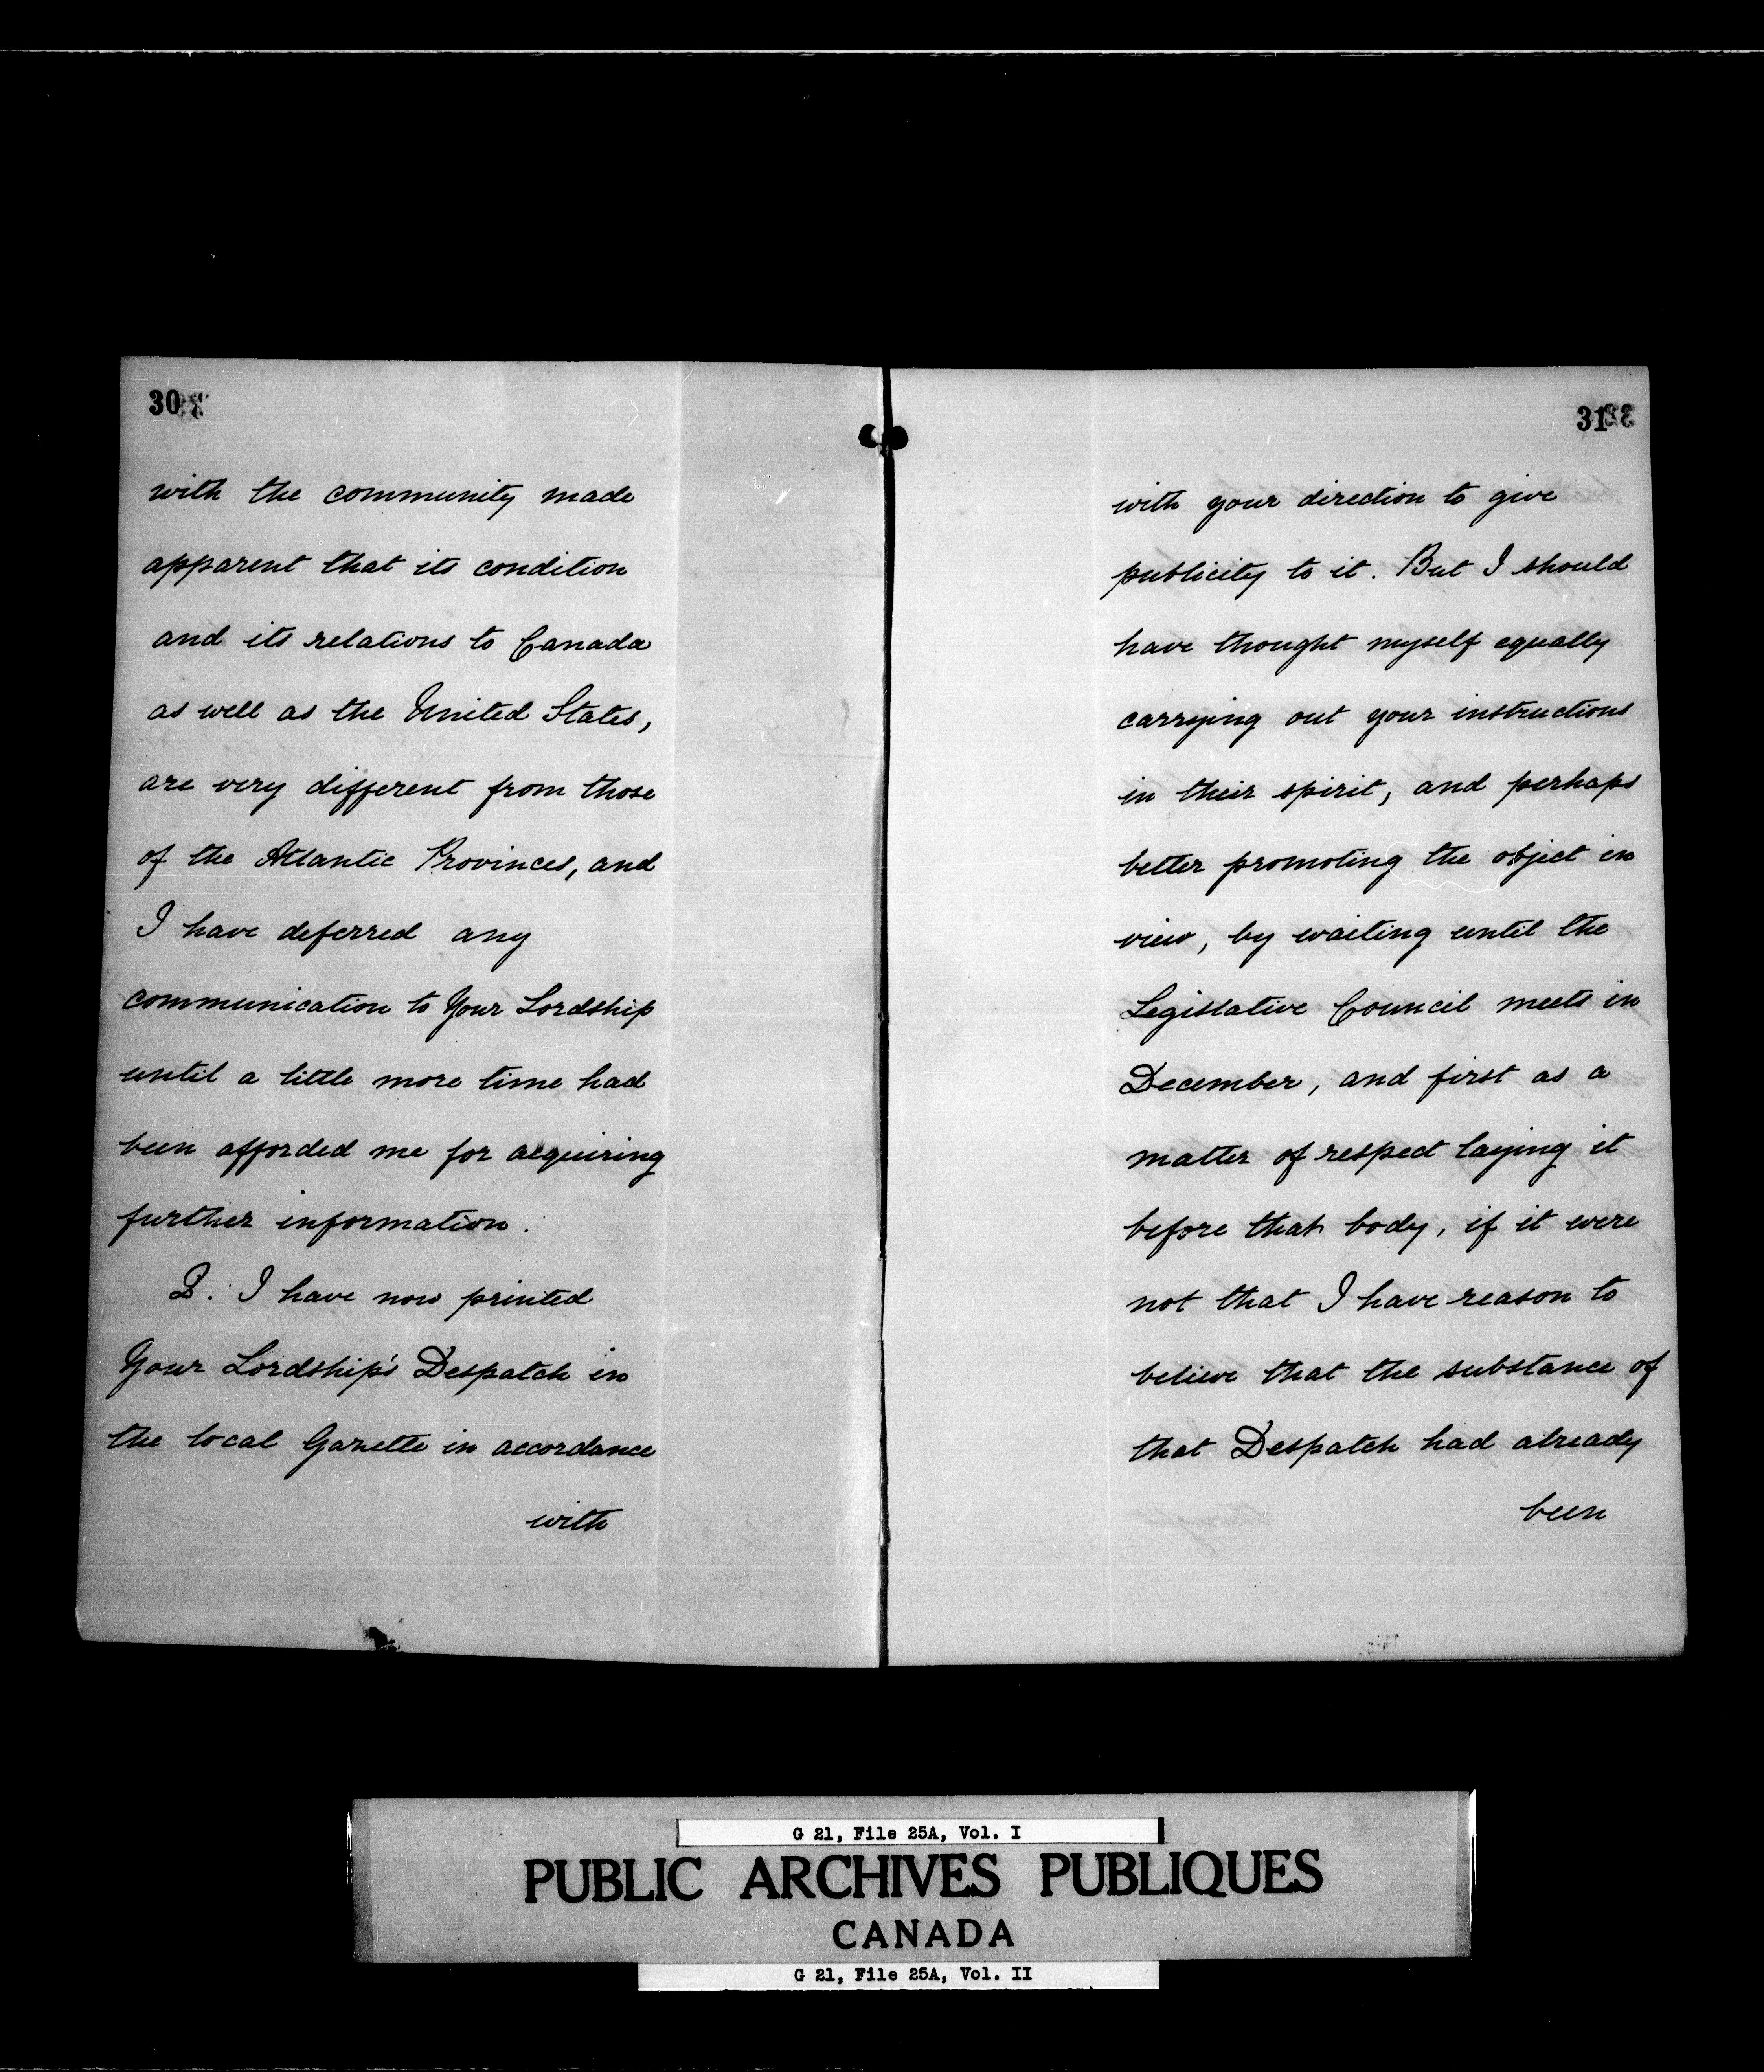 30
with the community made
apparent that its condition
and its relations to Canada
as well as the United States,
are very different from those
of the Atlantic Provinces, and
I have deferred any
communication to Your Lordship
until a little more time had
been afforded me for acquiring
further information.
2. I have now printed
Your Lordship's Despatch in
the local Gazette in accordance
with
31
with your direction to give
publicity to it. But I should
have thought myself equally
carrying out your instructions
in their spirit, and perhaps
better promoting the object in
view, by waiting until the
Legislative Council meets in
December, and first as a
matter of respect laying it
before that body, if it were
not that I have reason to
believe that the substance of
that Despatch had already
been
G 21, File 25A, Vol. I
PUBLIC ARCHIVES PUBLIQUES
CANADA
G 21, File 25A, Vol. II